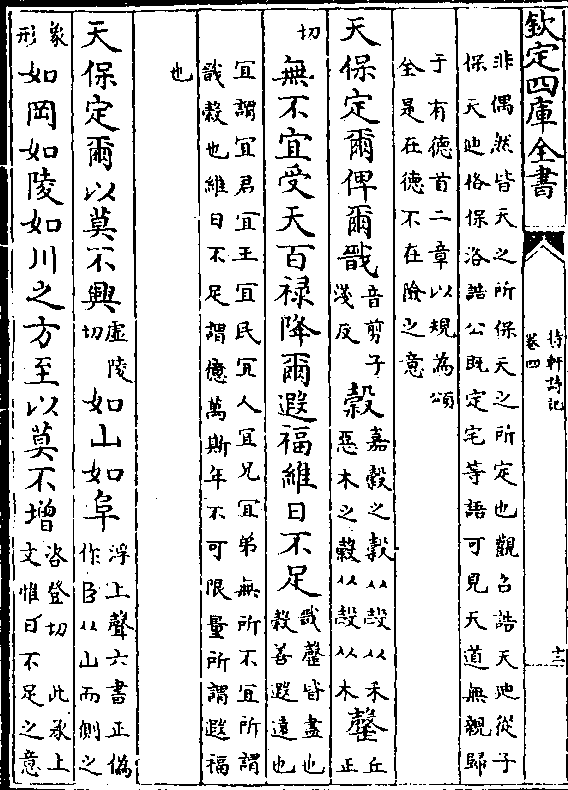 欽定四庫全書
待軒詩記
卷四
十二
非偶然皆天之所保天之所定也觀召誥天迪從子
保天迪格保洛誥公既定宅等語可見天道無親歸
于有德首二章以規為頌
全是在德不在險之意
天保定爾俾爾戩
音剪子
淺反
榖
嘉榖之榖从㱿从禾
惡木之榖从㱿从木
罄
丘
正
切
無不宜受天百禄降爾遐福維日不足
戩罄皆盡也
榖善遐遠也
宜謂宜君宜王宜民宜人宜兄宜弟無所不宜所謂
戩榖也維日不足謂億萬斯年不可限量所謂遐福
也
天保定爾以莫不興
虛陵
切
如山如阜
浮上聲六書正偽
作𨸏从山而側之
象
形
如岡如陵如川之方至以莫不增
咨登切 此承上
文惟日不足之意